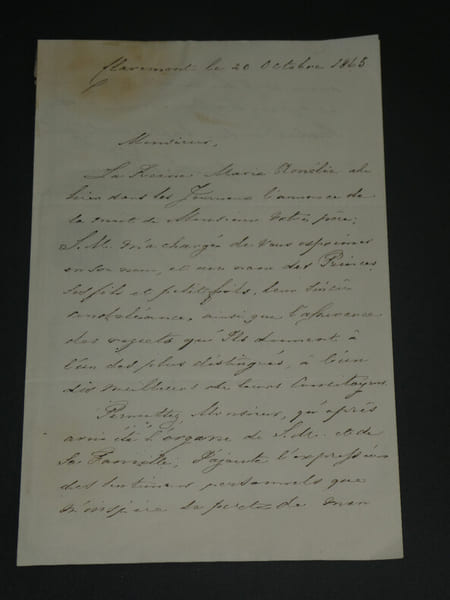 Claremont le 20 Octobre 1865
Monsieur,
La Reine Marie Amélie a lu
hier dans les Journaux l'annonce de
la mort de Monsieur votre père;
S. M. m'a chargée de vous exprimer
en son nom, et au nom des Princes,
ses fils et petit fils, leur sincère
condoléance, ainsi que l'assurance
des regrets qu'ils donnent à
l'un des plus distingués, à l'un
des meilleurs de leurs
Permettez Monsieur, qu'après
avoir été l'organe de S. M. et de
Sa Famille, j'ajoute l'expression
des sentimens personnels que
m'inspire la perte de mon